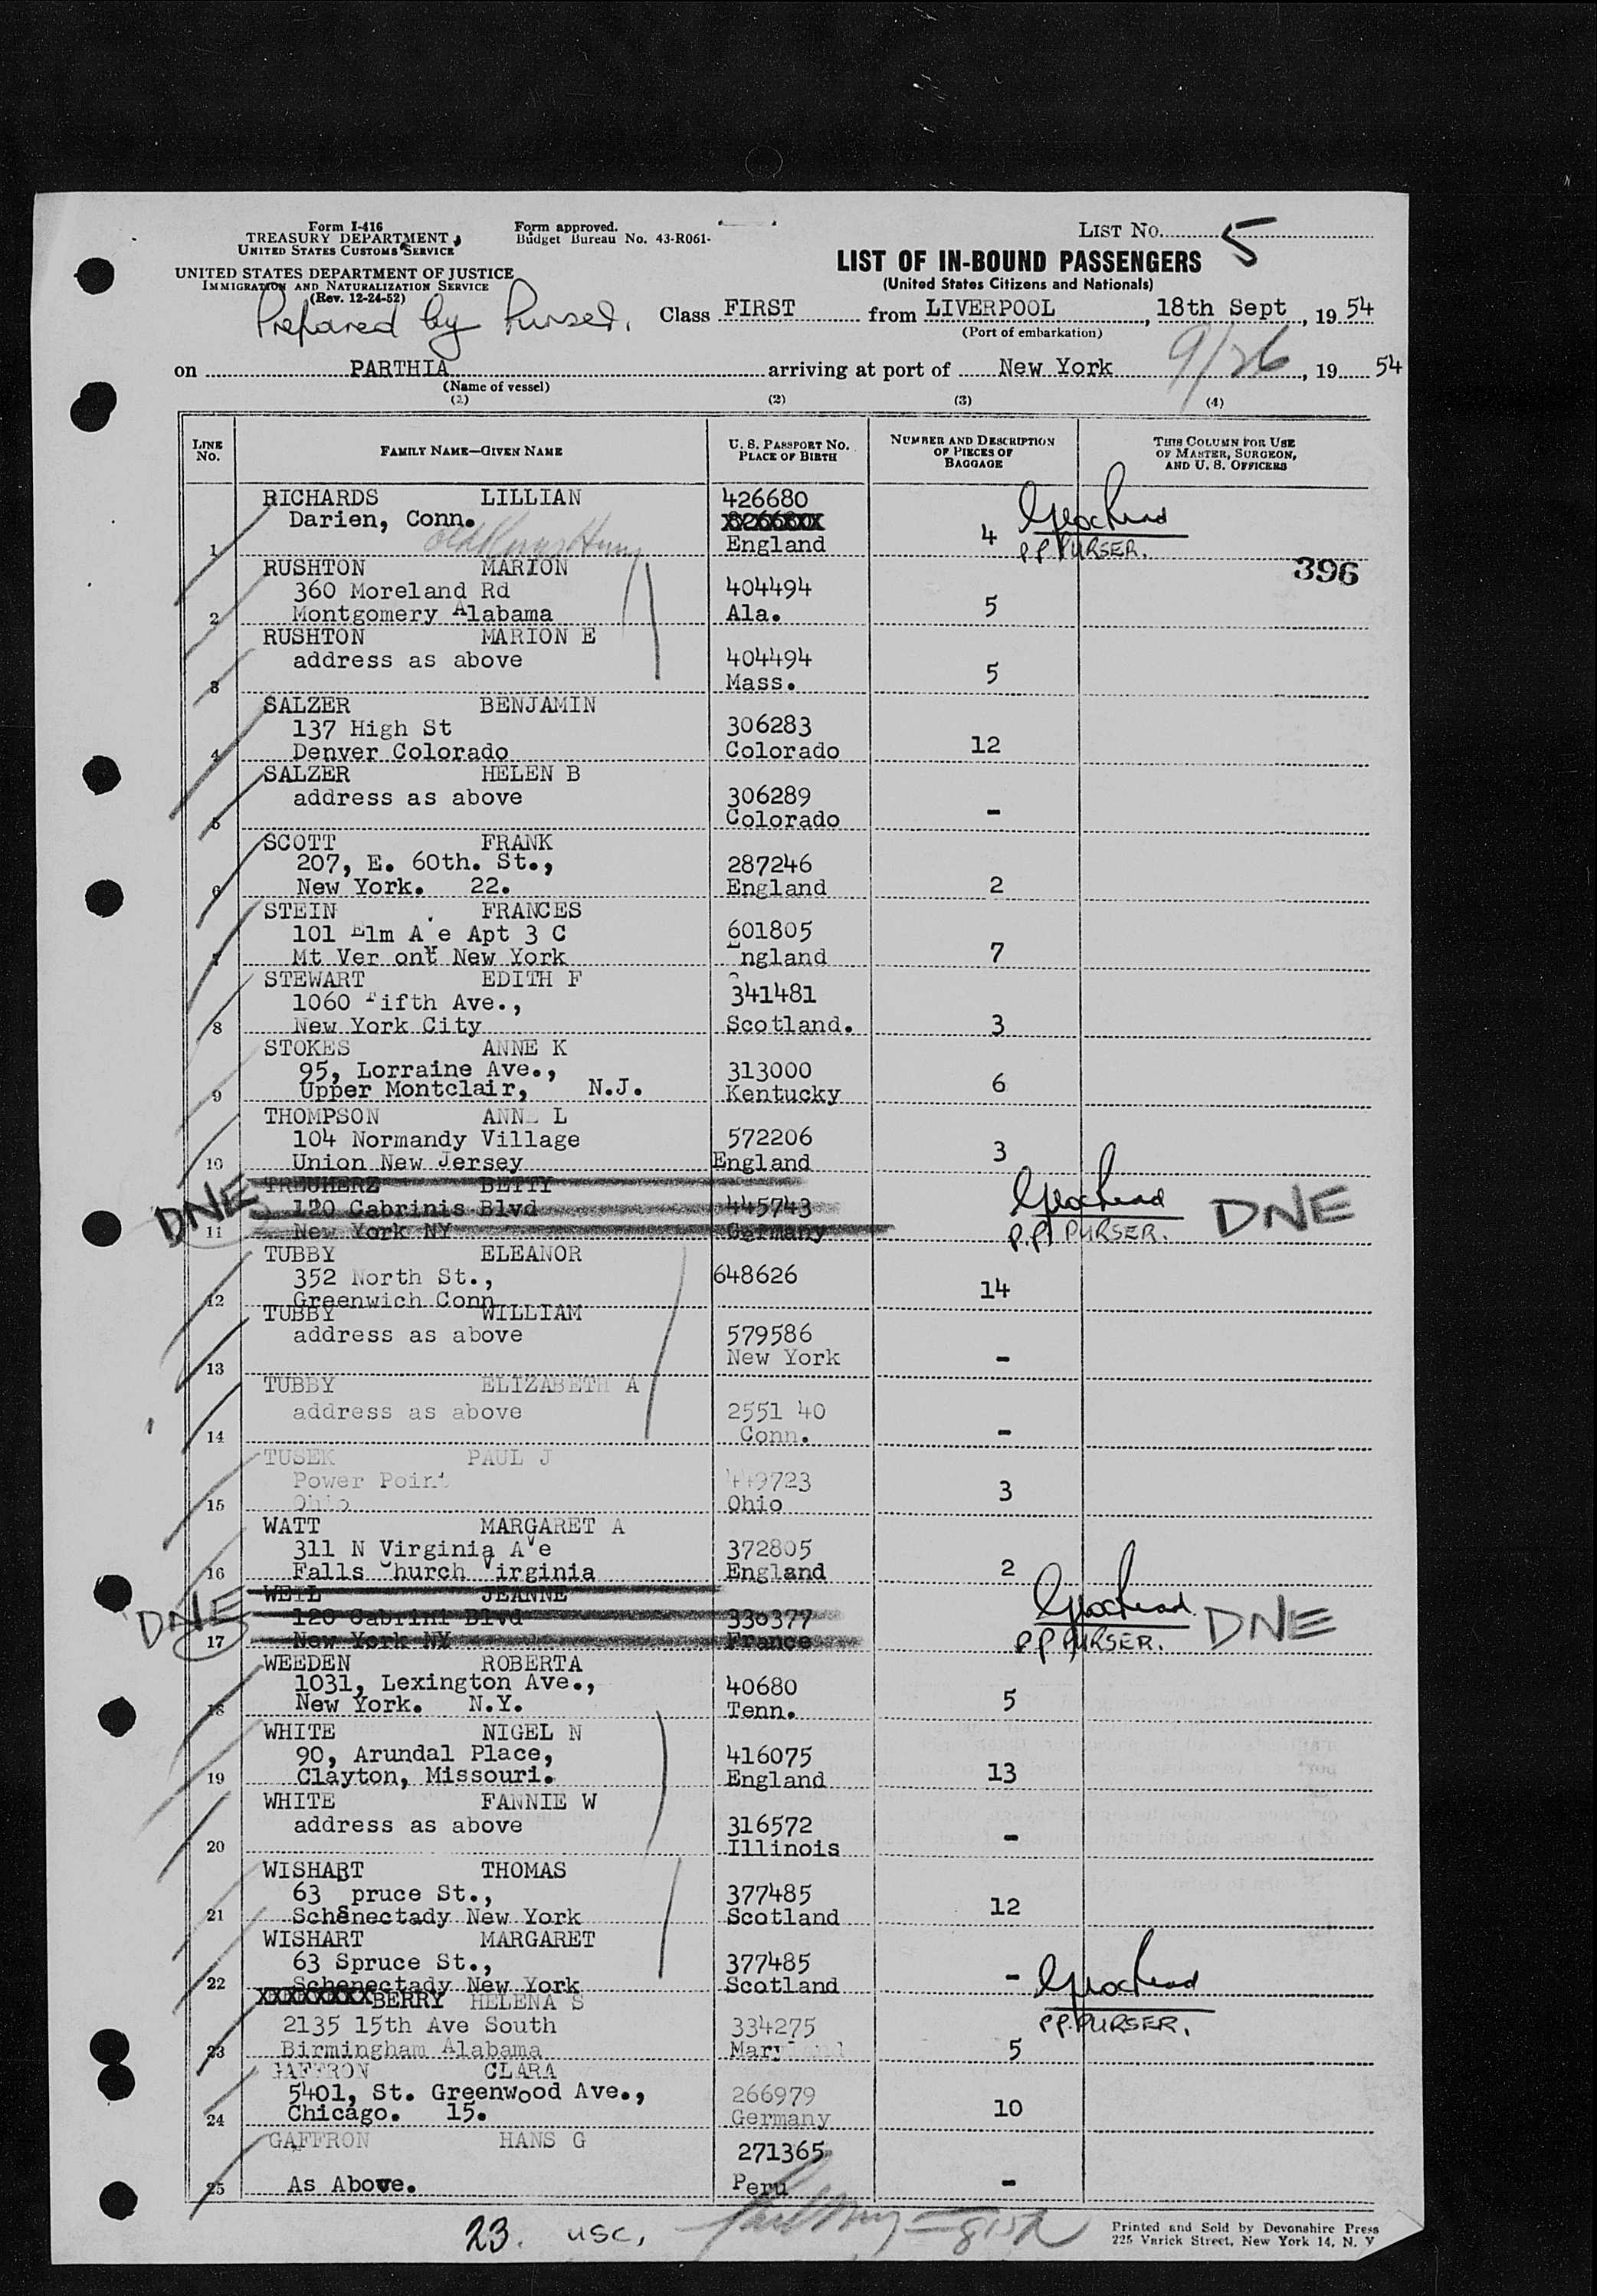 Form I-416
TREASURY DEPARTMENT
UNITED STATES CUSTOMS SERVICE
Form approved.
Budget Bureau No. 43-R061-
LIST No. 5
UNITED STATES DEPARTMENT OF JUSTICE
IMMIGRATION AND NATURALIZATION SERVICE
(Rev. 12-24-52)
LIST OF IN-BOUND PASSENGERS
(United States Citizens and Nationals)
Prepared by Purser.
Class FIRST from LIVERPOOL, 18th Sept, 19 54
(Port of embarkation)
on PARTHIA arriving at port of New York 9/26, 19 54
(Name of vessel)
(1) (2) (3) (4)
LINE No. FAMILY NAME—GIVEN NAME U. S. PASSPORT No. PLACE OF BIRTH NUMBER AND DESCRIPTION OF PIECES OF BAGGAGE THIS COLUMN FOR USE OF MASTER, SURGEON, AND U. S. OFFICERS
RICHARDS LILLIAN 426680
Darien, Conn.
1 England 4 P.P. PURSER.
396
RUSHTON MARION
360 Moreland Rd 404494
2 Montgomery Alabama Ala. 5
RUSHTON MARION E
address as above 404494
3 Mass. 5
SALZER BENJAMIN
137 High St 306283
4 Denver Colorado Colorado 12
SALZER HELEN B
address as above 306289
5 Colorado -
SCOTT FRANK
207, E. 60th. St., 287246
6 New York. 22. England 2
STEIN FRANCES
101 Elm A'e Apt 3 C 601805
7 Mt Ver ont New York England 7
STEWART EDITH F
1060 Fifth Ave., 341481
8 New York City Scotland. 3
STOKES ANNE K
95, Lorraine Ave., 313000
9 Upper Montclair, N.J. Kentucky 6
THOMPSON ANN L
104 Normandy Village 572206
10 Union New Jersey England 3
DNE TREUHERZ BETTY
120 Cabrinis Blvd 445743 DNE
11 New York NY Germany P.P. PURSER.
TUBBY ELEANOR
352 North St., 648626
12 Greenwich Conn 14
TUBBY WILLIAM
address as above 579586
13 New York -
TUBBY ELIZABETH A
address as above 2551 40
14 Conn. -
TUSEK PAUL J
Power Point 449723
15 Ohio Ohio 3
WATT MARGARET A
311 N Virginia Ave 372805
16 Falls Church Virginia England 2
DNE WEIL JEANNE
120 Cabrini Blvd 330377 DNE
17 New York NY France P.P. PURSER.
WEEDEN ROBERTA
1031, Lexington Ave., 40680
18 New York. N.Y. Tenn. 5
WHITE NIGEL N
90, Arundal Place, 416075
19 Clayton, Missouri. England 13
WHITE FANNIE W
address as above 316572
20 Illinois -
WISHART THOMAS
63 Spruce St., 377485
21 Schenectady New York Scotland 12
WISHART MARGARET
63 Spruce St., 377485
22 Schenectady New York Scotland -
XXXXXXXXBERRY HELENA S
2135 15th Ave South 334275 P.P. PURSER.
23 Birmingham Alabama Maryland 5
GAFFRON CLARA
5401, St. Greenwood Ave., 266979
24 Chicago. 15. Germany 10
GAFFRON HANS G
271365
25 As Above. Peru -
23. USC,
Printed and Sold by Devonshire Press
225 Varick Street, New York 14, N. Y